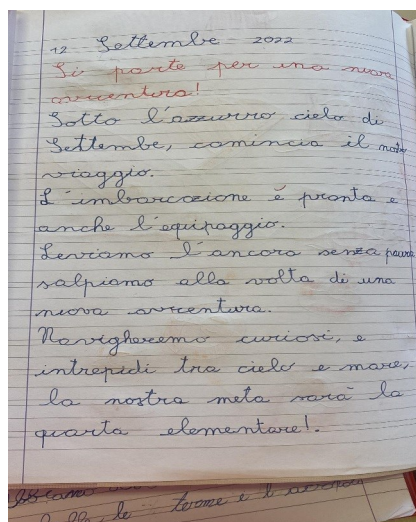 12 Settembe 2022
Si parte per una nuova
avventura!
Sotto l'azzurro cielo di
Settembe, comincia il nostro
viaggio.
L'imbarcazione è pronta e
anche l'equipaggio.
Leviamo l'ancora senza paura
salpiamo alla volta di una
nuova avventura.
Navigheremo curiosi, e
intrepidi tra cielo e mare,
la nostra meta sarà la
quarta elementare!.
le terme e l'acropoli